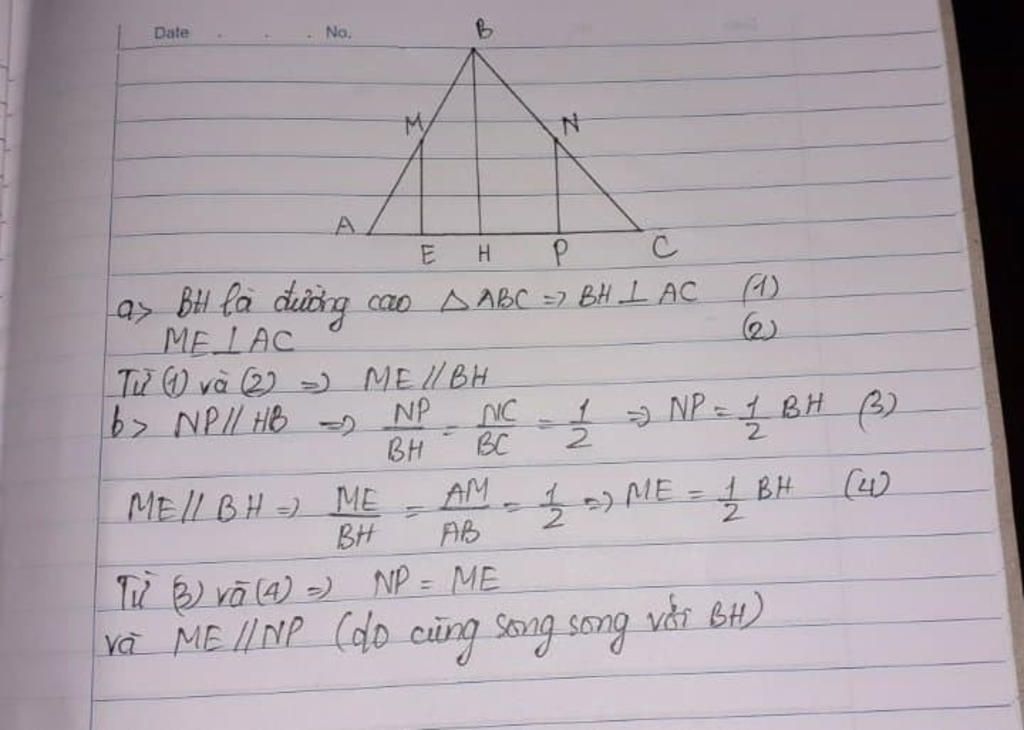 Date . . . No.
B
M N
A E H P C
a> BH là đường cao △ABC => BH ⊥ AC (1)
ME ⊥ AC (2)
Từ (1) và (2) => ME // BH
b> NP // HB => NP/BH = NC/BC = 1/2 => NP = 1/2 BH (3)
ME // BH => ME/BH = AM/AB = 1/2 => ME = 1/2 BH (4)
Từ (3) và (4) => NP = ME
và ME // NP (do cùng song song với BH)